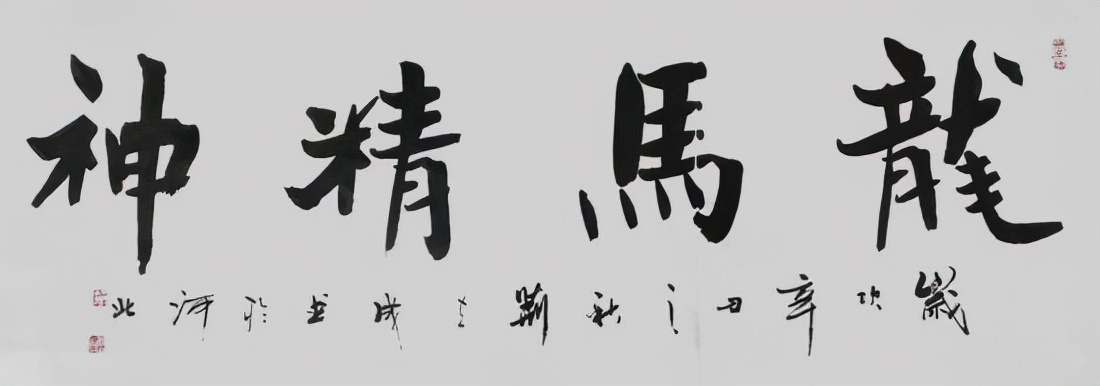 龍馬精神
歲次辛丑之秋荊志成書於河北